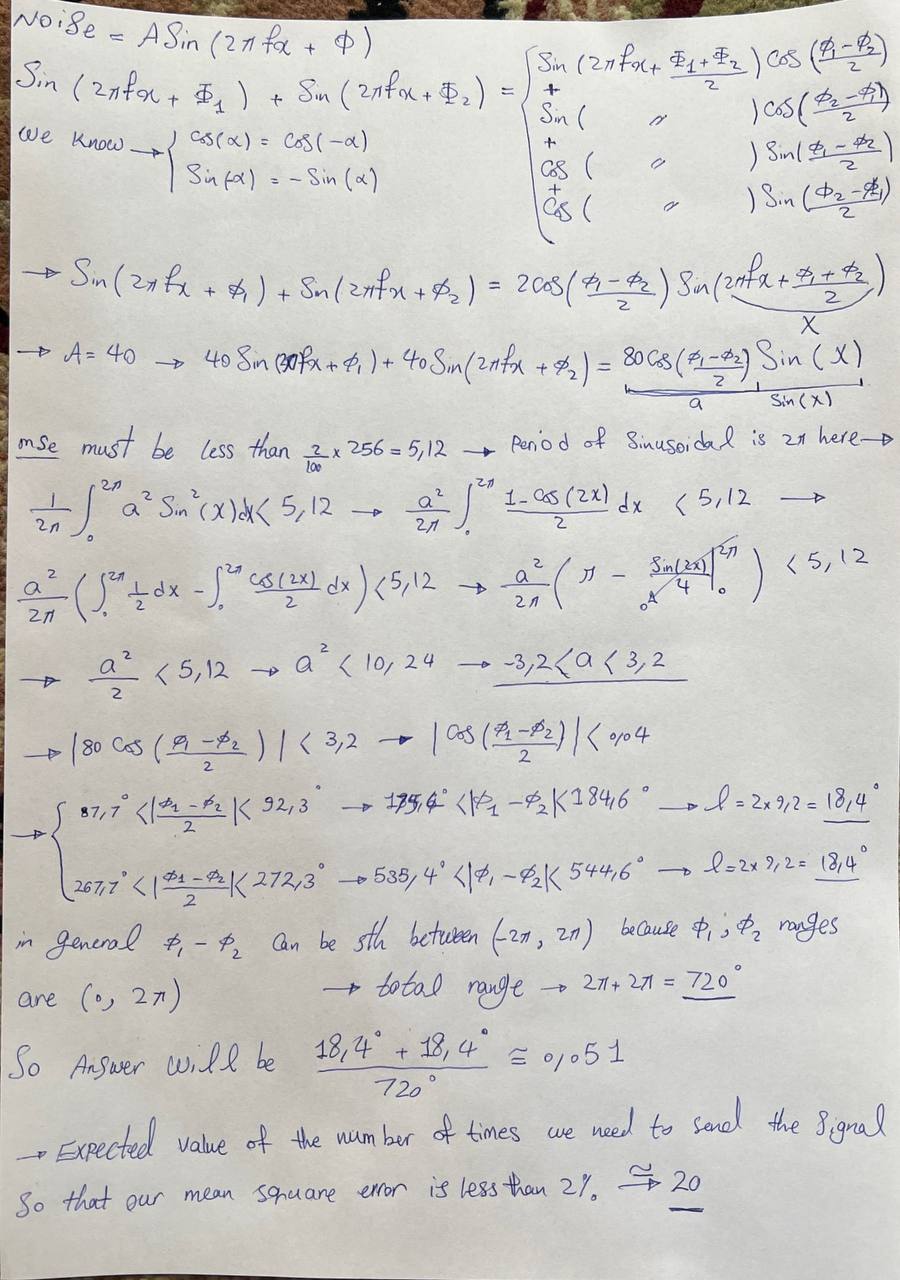 Noise = A Sin (2π fx + Φ)
Sin (2πfx + Φ₁) + Sin (2πfx + Φ₂) = { Sin (2πfx + (Φ₁+Φ₂)/2) Cos ((Φ₁-Φ₂)/2)
+
Sin ( 〃 ) Cos ((Φ₂-Φ₁)/2)
+
Cos ( 〃 ) Sin ((Φ₁-Φ₂)/2)
+
Cos ( 〃 ) Sin ((Φ₂-Φ₁)/2)
we know → { cos(α) = cos(-α)
Sin(-α) = -Sin(α)
→ Sin(2πfx + Φ₁) + Sin(2πfx + Φ₂) = 2cos((Φ₁-Φ₂)/2) Sin(2πfx + (Φ₁+Φ₂)/2)
X
→ A = 40 → 40 Sin(2πfx + Φ₁) + 40 Sin(2πfx + Φ₂) = 80 Cos((Φ₁-Φ₂)/2) Sin(X)
a Sin(X)
mse must be less than 2/100 × 256 = 5,12 → Period of Sinusoidal is 2π here →
1/2π ∫₀^2π a² Sin²(x)dx < 5,12 → a²/2π ∫₀^2π (1-cos(2x))/2 dx < 5,12 →
a²/2π (∫₀^2π 1/2 dx - ∫₀^2π cos(2x)/2 dx) < 5,12 → a²/2π (π - Sin(2x)/4 |₀^2π) < 5,12
0
→ a²/2 < 5,12 → a² < 10,24 → -3,2 < a < 3,2
→ |80 Cos ((Φ₁-Φ₂)/2)| < 3,2 → |Cos((Φ₁-Φ₂)/2)| < 0,04
→ { 87,7° < |(Φ₁-Φ₂)/2| < 92,3° → 175,4° < |Φ₁-Φ₂| < 184,6° → l = 2×9,2 = 18,4°
267,7° < |(Φ₁-Φ₂)/2| < 272,3° → 535,4° < |Φ₁-Φ₂| < 544,6° → l = 2×9,2 = 18,4°
in general Φ₁-Φ₂ can be sth between (-2π, 2π) because Φ₁, Φ₂ ranges
are (0, 2π) → total range → 2π+2π = 720°
So Answer will be (18,4° + 18,4°)/720° ≅ 0,051
→ Expected value of the number of times we need to send the signal
So that our mean square error is less than 2% ≅→ 20